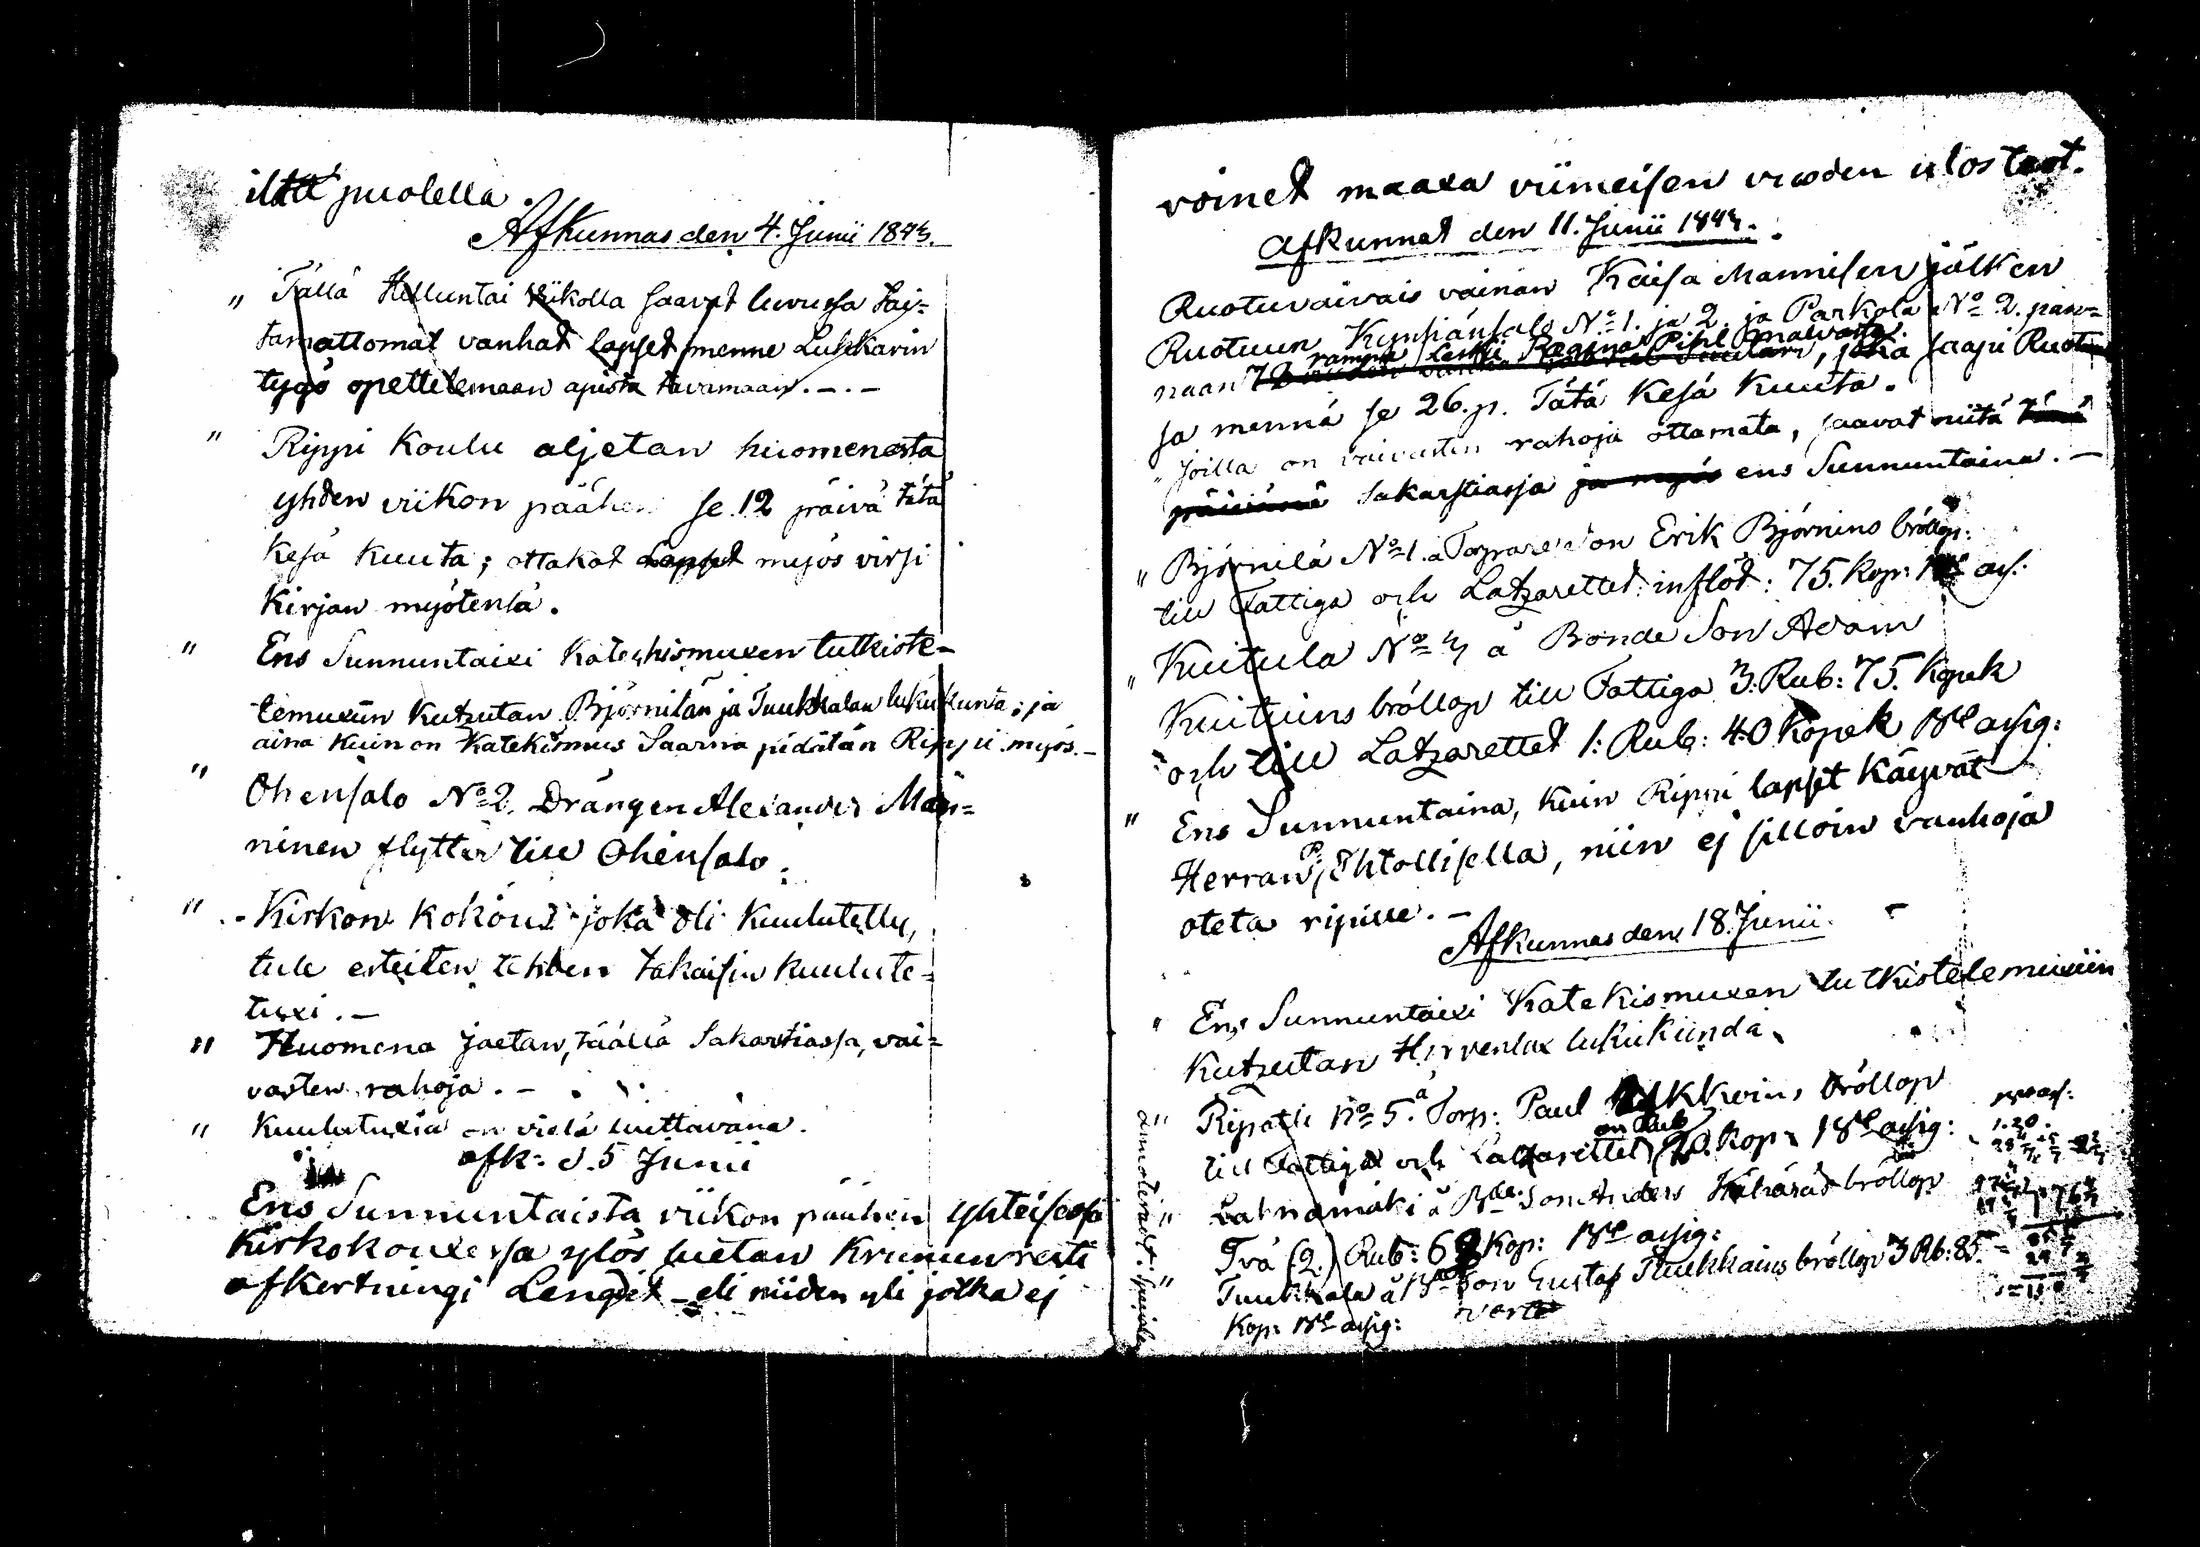 iltä puolella.
Afkunnas den 4. Junii 1843.
" Tällä Helluntai viikolla saavat luvussa tai=
tamattomat vanhat lapset menne Lukkarin
tygö opettelemaan apista tavamaan. - . -
" Rippi Koulu aljetan huomenesta
yhden viikon päähen se 12 päivä tätä
Kesä Kuuta; ottakat Lapset myös virsi
Kirjan myötensä.
" Ens Sunnuntaixi Katechismuxen tutkiste-
lemuxiin Kutzutan Björnilän ja Tuukkalan lukukunta; ja
aina Kuin on Katekismus Saarna pidätän Rippi myös. -
" Ohensalo No 2. Drängen Alexander Man=
ninen flyttar till Ohensalo.
" - Kirkon Kokous joka oli Kuulutettu,
tule esteiten tähden takaisin kuulute=
tuxi. -
" Huomena jaetan, täällä Sakarstiassa, vai=
vasten rahoja. -
" Kuulutuxia on vielä luettavana.
afk: d. 5 Junii
Ens Sunnuntaista viikon päähän yhteisessä
Kirkokouxessa ylös luetan Krunun resti
afkortningi Lengdit - eli niiden yli jotka ej
voinet maxa viimeisen vuoden ulosteot.
Afkunnat den 11. Junii 1843.
Ruotuvaivais vainan Kaisa Mannisen jälken
Ruotuun Kynsiänsalo No 1. ja 2. ja Parkola No 2. pan=
rampa Leski Regina Pihl
naan joka saapi Ruotu
ja mennä se 26. p. Tätä Kesä Kuuta.
" Joilla on vaivasten rahoja ottamata, saavat niitä
Sakarstiasa ja myös ens Sunnuntaina. -
" Björnilä No 1. a Torpare Son Erik Björnins bröllop:
till Fattiga och Latzarettet: inflöt: 75. Kop:
" Kuitula No 4 a Bonde Son Adam
Kuituins bröllop till Fattiga 3: Rub: 75. Kopek
och till Latzarettet 1: Rub: 40 Kopek assig:
" Ens Sunnuntaina, Kuin Rippi lapset Käyvät
Herran Ehtollisella, niin ej silloin vanhoja
oteta ripille. -
Afkunnas den 18. Junii.
" Ens Sunnuntaixi Katekismuxen tutkistelemuxiin
Kutzutan Hirvenlax lukukunda.
" Ripatti No 5. a Torp: Paul bröllop
till Fattiga och Latzarettet 20. Kop: assig:
" a Son Anders bröllop
Två (2.) Rub: Kop: assig:
" Tuukkala a Son Gustaf Tuukkains bröllop 3 Rb: 85.
Kop: assig: vert
1.20.